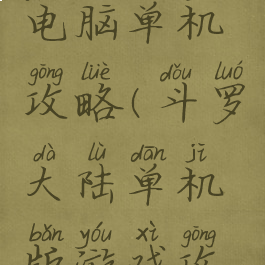 电脑单机
gōng lüè dǒu luó
攻略(斗罗
dà lù dān jī
大陆单机
bǎn yóu xì gōng
版游戏攻